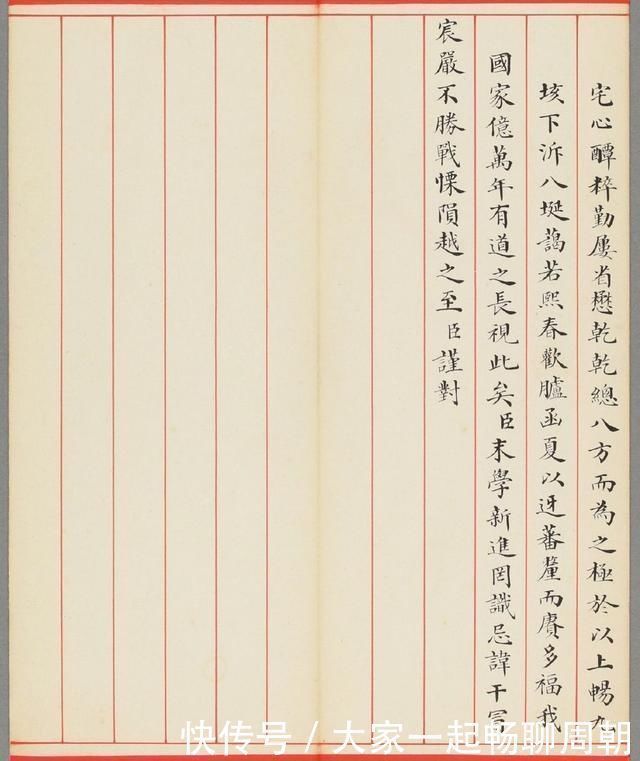 宅心醰粹勤屢省懋乾乾總八方而為之極於以上暢九
垓下泝八埏藹若熙春歡臚函夏以迓蕃釐而賡多福我
國家億萬年有道之長視此矣臣末學新進罔識忌諱干冒
宸嚴不勝戰慄隕越之至臣謹對
快传号/大家一起畅聊周朝